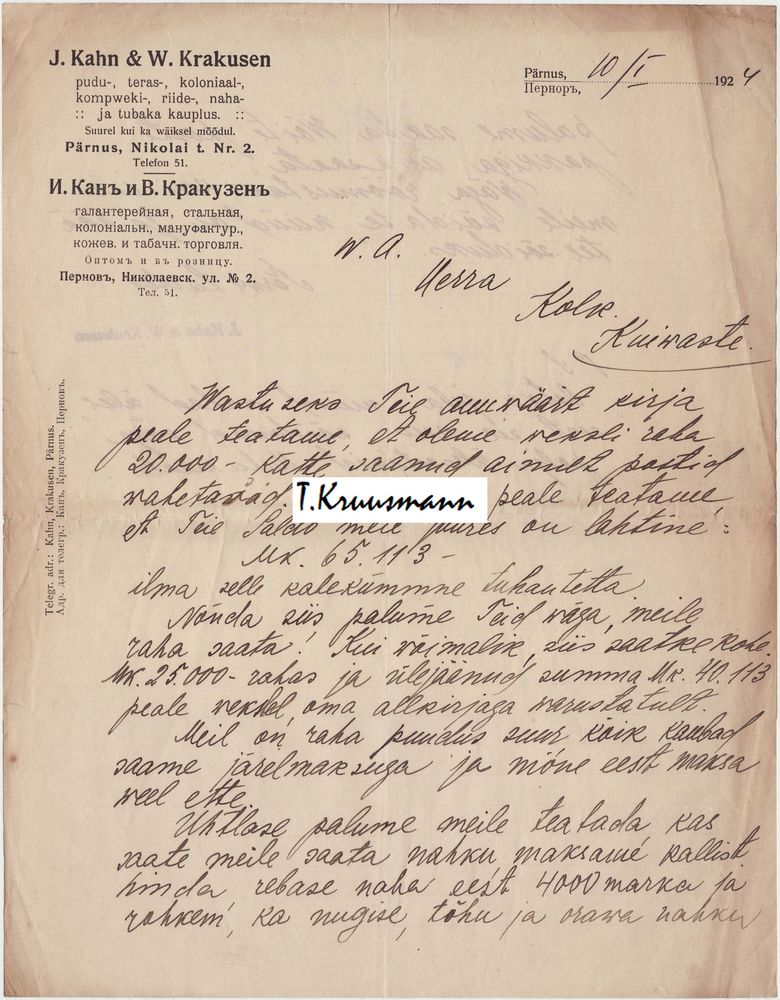 J. Kahn & W. Krakusen
pudu-, teras-, koloniaal-,
kompweki-, riide-, naha-
:: ja tubaka kauplus. ::
Suurel kui ka wäiksel mõõdul.
Pärnus, Nikolai t. Nr. 2.
Telefon 51.
И. Канъ и В. Кракузенъ
галантерейная, стальная,
колоніальн., мануфактур.,
кожев. и табачн. торговля.
Оптомъ и въ розницу.
Перновъ, Николаевск. ул. № 2.
Тел. 51.
Pärnus, 10/I 1924
Перноръ,
Telegr. adr.: Kahn, Krakusen, Pärnus.
Адр. для телегр.: Канъ, Кракузенъ, Перновъ.
W. A.
Herra
Kolk.
Kuiwaste.
Wastuseks Teie auuwäärt kirja
peale teatame, et oleme weksli raha
20.000- katte saanud ainult postid
wahetawad. T.Kruusmann peale teatame,
et Teie Saldo meie juures on lahtine:
Mk. 65.113-
ilma selle kahekümmne tuhantetta
Nõnda siis palume Teid wäga, meile
raha saata! Kui wõimalik, siis saatke kohe.
Mk. 25.000- rahas ja ülejäänud summa Mk. 40.113
peale weksel, oma allkirjaga warustatult.
Meil on raha puudus suur kõik kaubad
saame järelmaksuga ja mõne eest maksa
weel ette.
Ühtlase palume meile teatada kas
saate meile saata nahku maksame kallist
hinda rebase naha eest 4000 marka ja
rohkem, ka nugise, tõhu ja orawa nahku